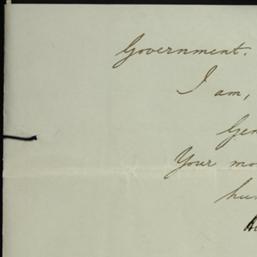 Government.
I am,
Gen
Your mo
hu